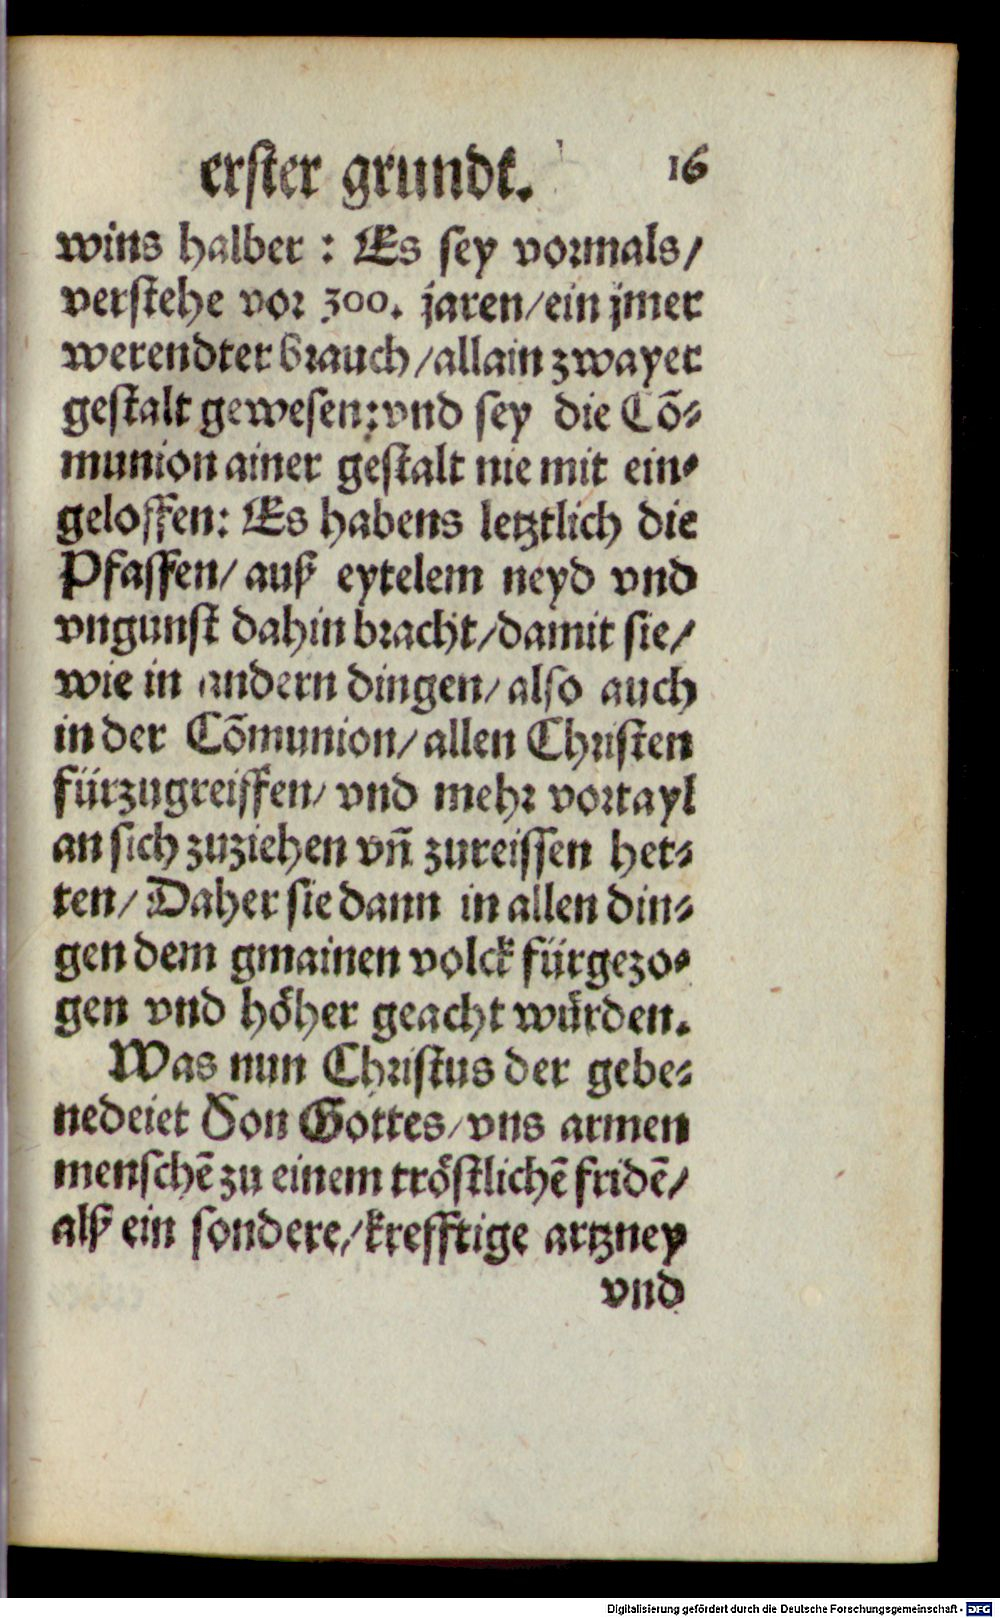 erster grundt. 16
wins halber : Es sey vormals/
verstehe vor 300. jaren/ein jmer
werendter brauch/allain zwayer
gestalt gewesen:vnd sey die Cõ-
munion ainer gestalt nie mit ein-
geloffen: Es habens letztlich die
Pfaffen/ auß eytelem neyd vnd
vngunst dahin bracht/damit sie/
wie in andern dingen/ also auch
in der Cõmunion/ allen Christen
fürzugreiffen/ vnd mehr vortayl
an sich zuziehen vñ zureissen het-
ten/ Daher sie dann in allen din-
gen dem gmainen volck fürgezo-
gen vnd höher geacht würden.
Was nun Christus der gebe-
nedeiet Son Gottes/vns armen
menschẽ zu einem tröstlichẽ fridẽ/
alß ein sondere/krefftige artzney
vnd
Digitalisierung gefördert durch die Deutsche Forschungsgemeinschaft - DFG